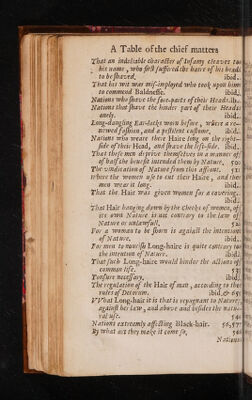 A Table of the chief matters
That an indeliable character of Infamy cleaves to
his name, who first suffered the haire of his head
to be shaved. ibid.
That his wit was mis-imployed who took upon him
to commend Baldnesse. ibid.
Nations who shave the fore-parts of their Heads. ib.
Nations that shave the hinder part of their Heads
onely. ibid.
Long-dangling Ear-locks worn before, where a re-
newed fashion, and a pestilent custome, ibid.
Nations who weare their Haire long on the right-
side of their Head, and shave the left-side. ibid.
That these men deprive themselves in a manner of
of half the benefit intended them by Nature. ibid.
The vindication of Nature from this affront.
Where the women use to cut their Haire, and the
men wear it long. ibid.
That the Hair was given women for a covering.
ibid.
That Hair hanging down by the cheeks of women, of
its own Nature is not contrary to the law of
Nature or unlawfull.
For a woman to be shorn is against the intention
of Nature. ibid.
For men to nourish Long-haire is quite contrary to
the intention of Nature. ibid.
That such Long-haire would hinder the actions of
common life. 53
Tonsure necessary. ibid.
The regulation of the Hair of man, according to the
rules of Decorum. ibid. &
VVhat Long-hair it is that is repugnant to Nature,
against her law, and above and besides the natu-
ral use. 54
Nations extreamly affecting Black-hair. 56, 57
By what art they make it come so,
Nations